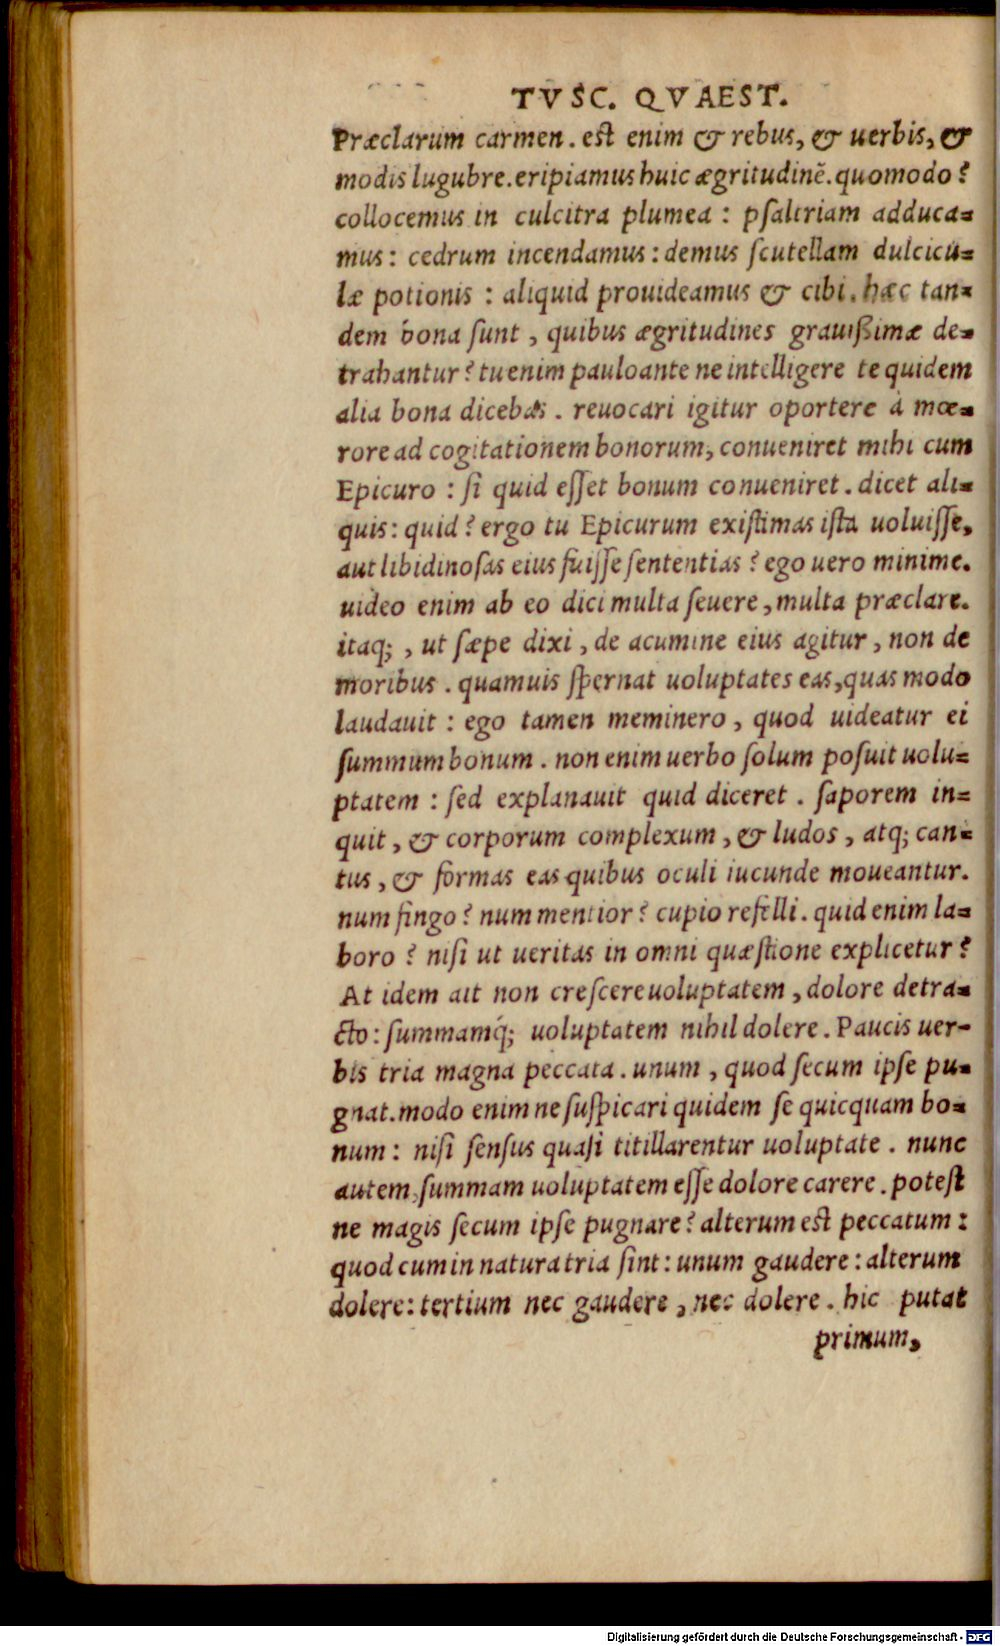 TVSC. QVAEST.
Præclarum carmen. est enim & rebus, & uerbis, &
modis lugubre. eripiamus huic ægritudinē. quomodo?
collocemus in culcitra plumea: psaltriam adduca=
mus: cedrum incendamus: demus scutellam dulcicu=
læ potionis: aliquid prouideamus & cibi. hæc tan=
dem bona sunt, quibus ægritudines grauißimæ de=
trahantur? tu enim pauloante ne intelligere te quidem
alia bona dicebas. reuocari igitur oportere à mœ=
rore ad cogitationem bonorum, conueniret mihi cum
Epicuro: si quid esset bonum conueniret. dicet ali=
quis: quid? ergo tu Epicurum existimas ista uoluisse,
aut libidinosas eius fuisse sententias? ego uero minime.
uideo enim ab eo dici multa seuere, multa præclare.
itaq;, ut sæpe dixi, de acumine eius agitur, non de
moribus. quamuis spernat uoluptates eas, quas modo
laudauit: ego tamen meminero, quod uideatur ei
summum bonum. non enim uerbo solum posuit uolu=
ptatem: sed explanauit quid diceret. saporem in=
quit, & corporum complexum, & ludos, atq; can=
tus, & formas eas quibus oculi iucunde moueantur.
num fingo? num mentior? cupio refelli. quid enim la=
boro? nisi ut ueritas in omni quæstione explicetur?
At idem ait non crescere uoluptatem, dolore detra=
cto: summamq́; uoluptatem nihil dolere. Paucis uer-
bis tria magna peccata. unum, quod secum ipse pu=
gnat. modo enim ne suspicari quidem se quicquam bo=
num: nisi sensus quasi titillarentur uoluptate. nunc
autem, summam uoluptatem esse dolore carere. potest
ne magis secum ipse pugnare? alterum est peccatum:
quod cum in natura tria sint: unum gaudere: alterum
dolere: tertium nec gaudere, nec dolere. hic putat
primum,
Digitalisierung gefördert durch die Deutsche Forschungsgemeinschaft - DFG